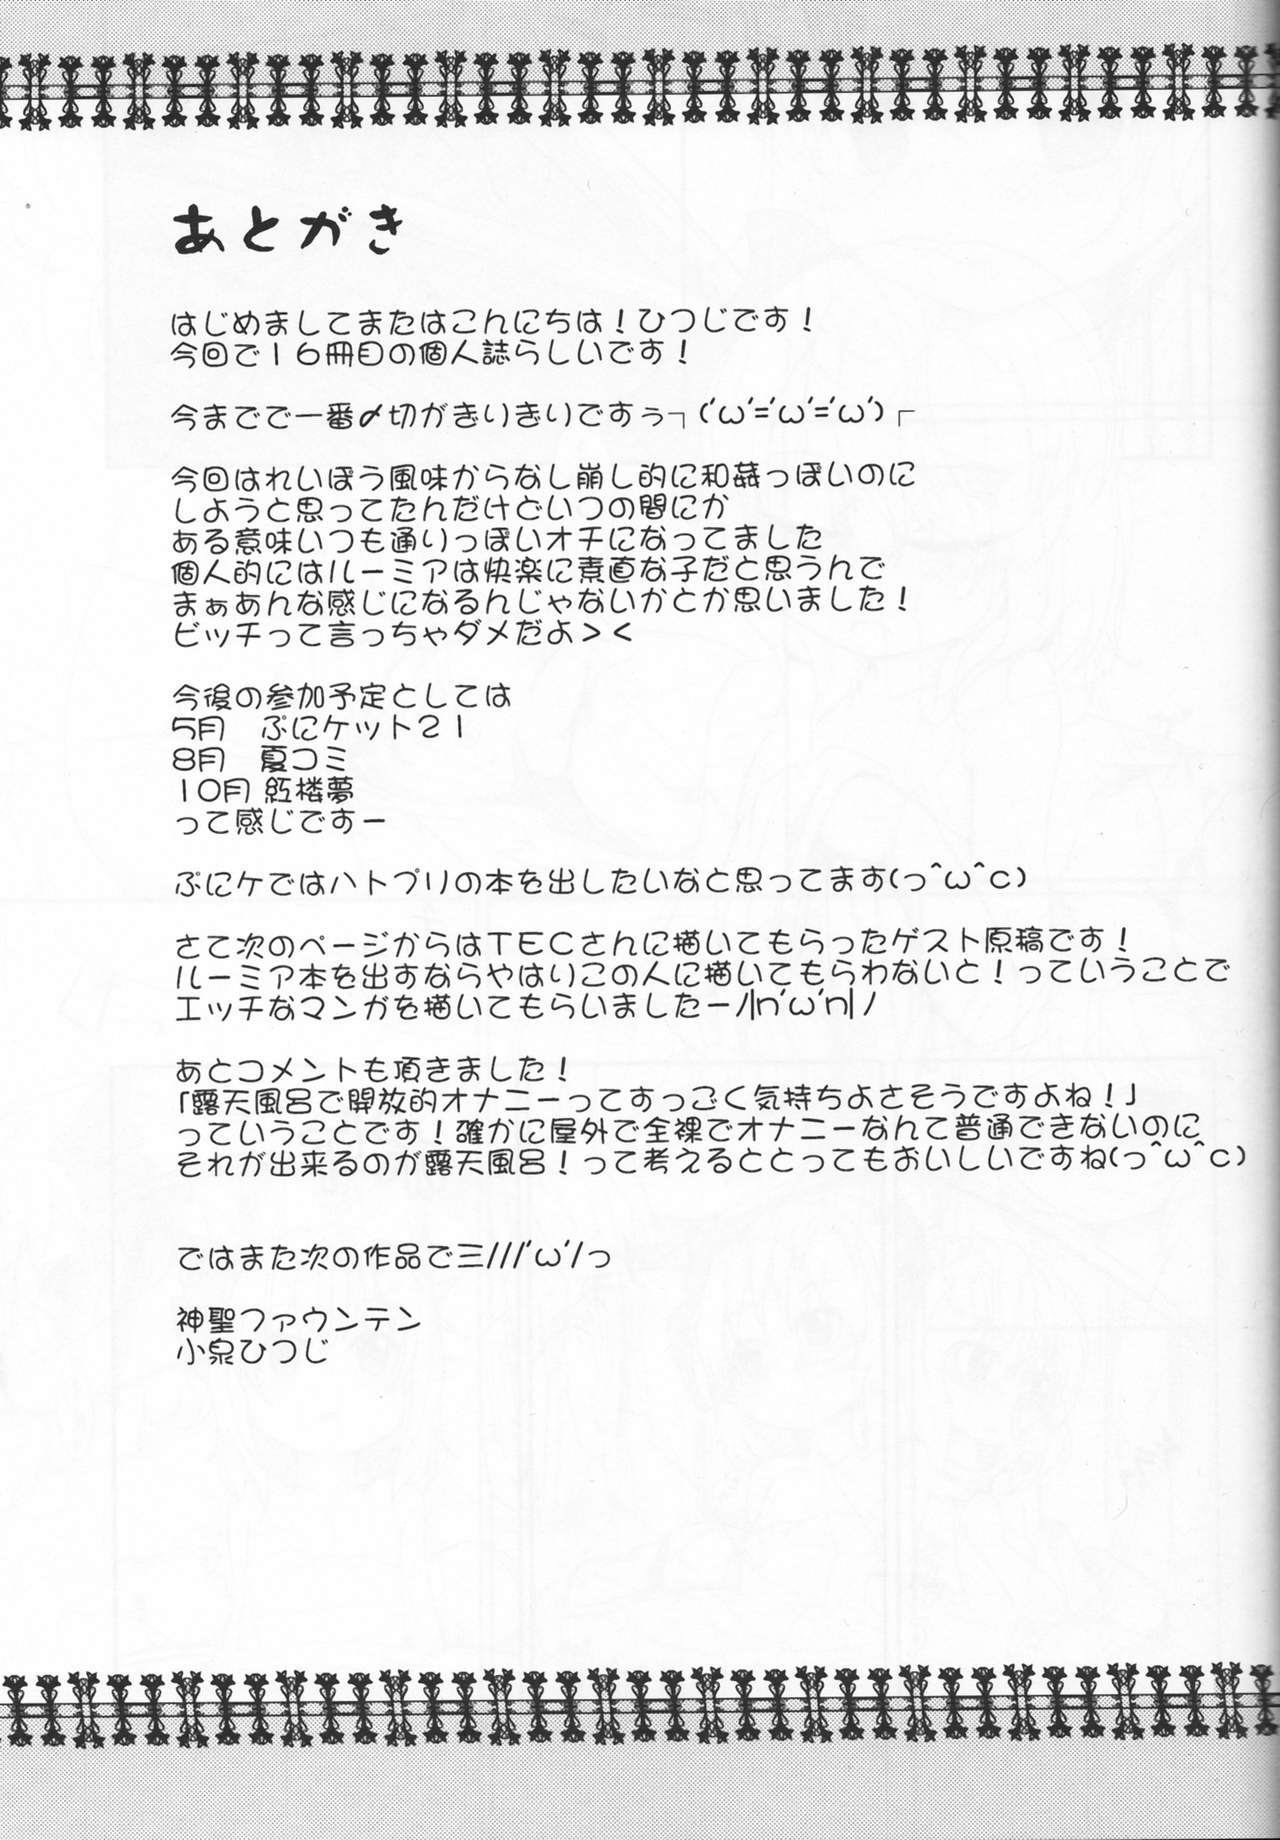 あとがき
はじめましてまたはこんにちは！ひつじです！
今回で１６冊目の個人誌らしいです！
今までで一番〆切がぎりぎりですぅ┐('ω'='ω'='ω')┌
今回はれいぽう風味からなし崩し的に和姦っぽいのに
しようと思ってたんだけどいつの間にか
ある意味いつも通りっぽいオチになってました
個人的にはルーミアは快楽に素直な子だと思うんで
まぁあんな感じになるんじゃないかとか思いました！
ビッチって言っちゃダメだよ＞＜
今後の参加予定としては
５月　ぷにケット２１
８月　夏コミ
１０月 紅楼夢
って感じですー
ぷにケではハトプリの本を出したいなと思ってます(っ＾ω＾ｃ)
さて次のページからはＴＥＣさんに描いてもらったゲスト原稿です！
ルーミア本を出すならやはりこの人に描いてもらわないと！っていうことで
エッチなマンガを描いてもらいましたーﾉ|n'ω'n|ﾉ
あとコメントも頂きました！
「露天風呂で開放的オナニーってすっごく気持ちよさそうですよね！」
っていうことです！確かに屋外で全裸でオナニーなんて普通できないのに
それが出来るのが露天風呂！って考えるととってもおいしいですね(っ＾ω＾ｃ)
ではまた次の作品で三///'ω'/っ
神聖ファウンテン
小泉ひつじ